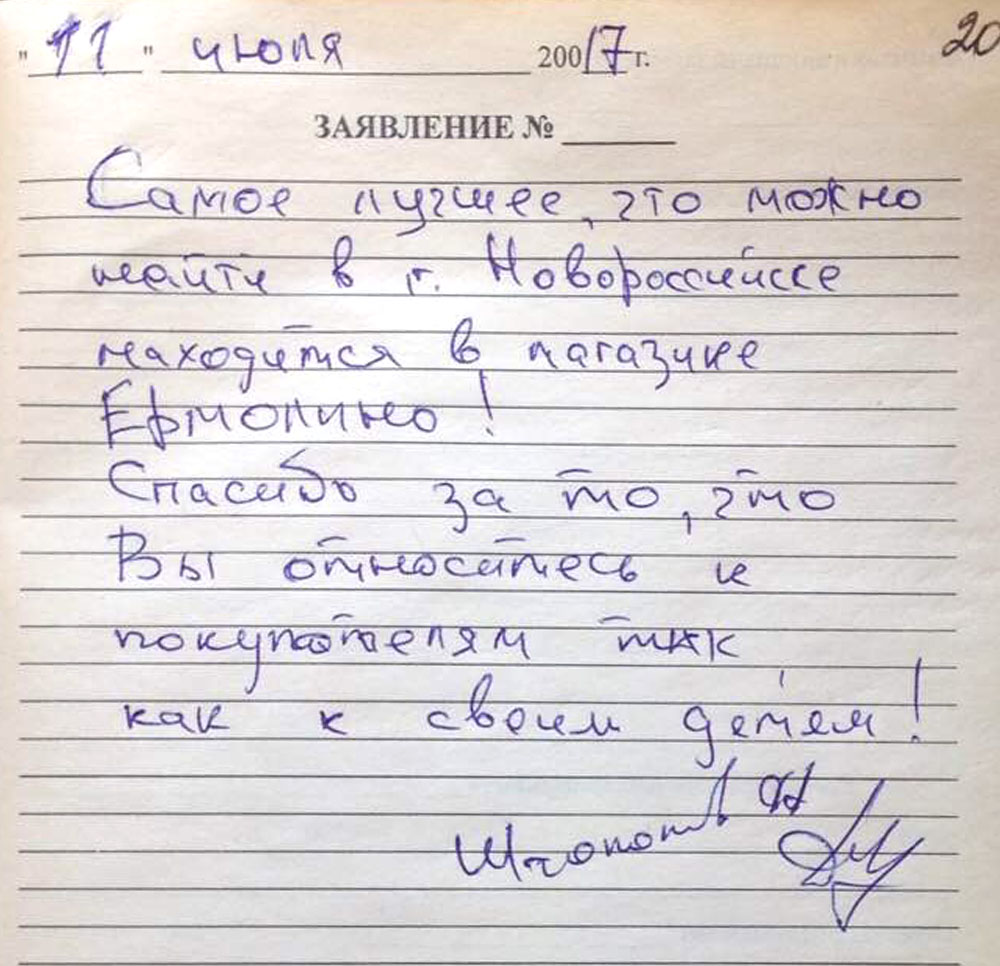 " 11 " июля 20017 г. 20
ЗАЯВЛЕНИЕ №
Самое лучшее, что можно
найти в г. Новороссийске
находится в магазине
Ермолино!
Спасибо за то, что
Вы относитесь к
покупателям так
как к своим детям!